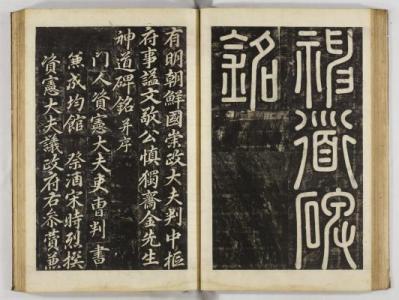 神道碑
銘
有明朝鮮國崇政大夫判中樞
府事謚文敬公慎獨齋金先生
神道碑銘 并序
門人資憲大夫吏曹判書
兼成均館 祭酒宋時烈撰
資憲大夫議政府右參贊兼